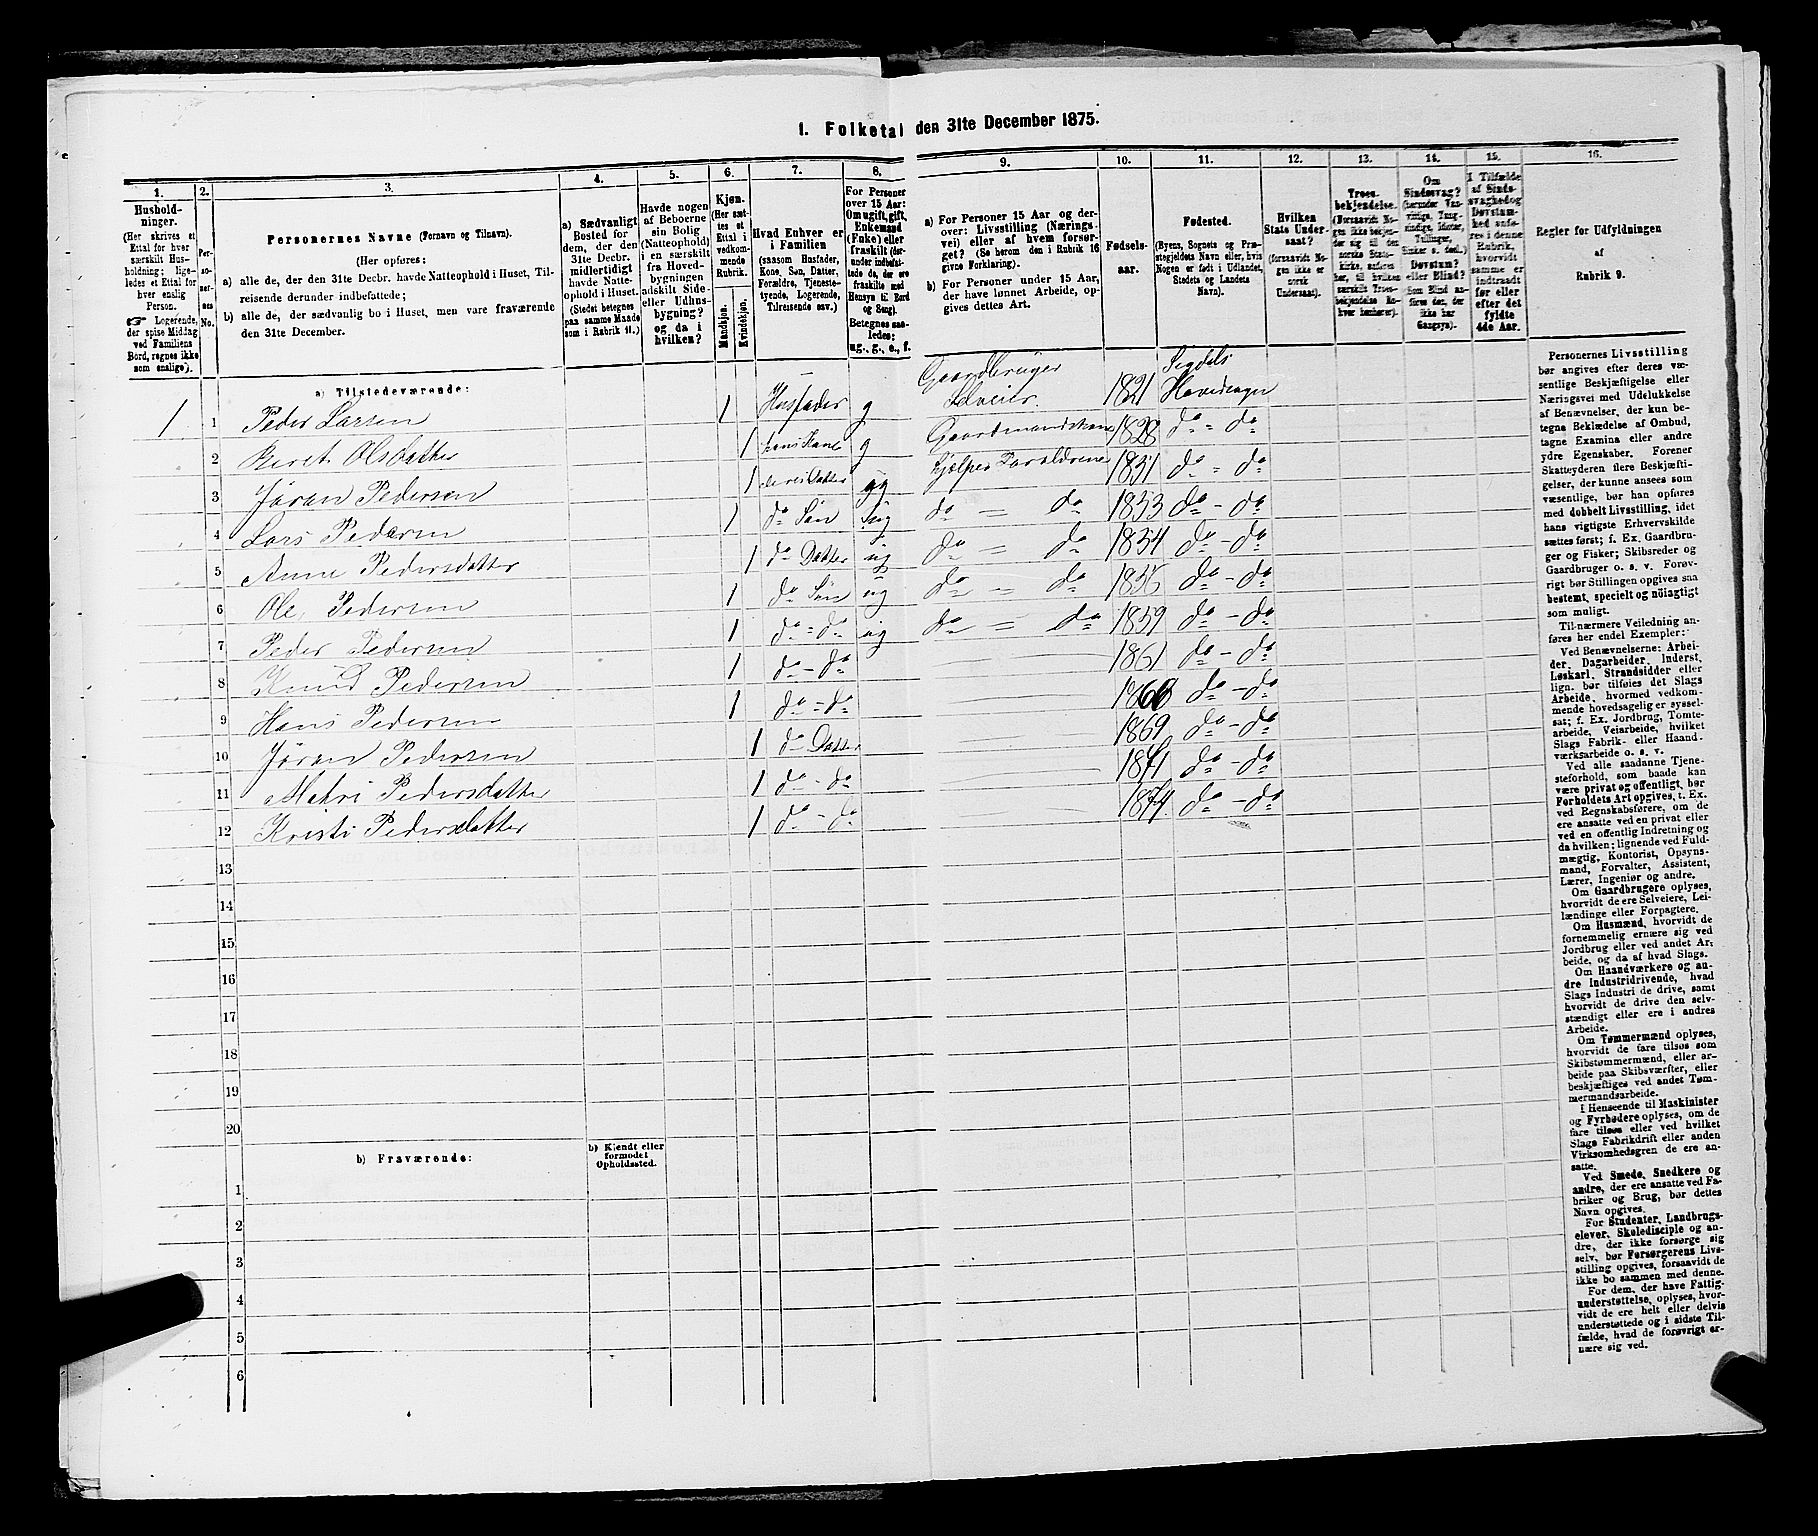 1. Folketal den 31te December 1875.
1. 2. 3. 4. 5. 6. 7. 8. 9. 10. 11. 12. 13. 14. 15. 16.
Husholdninger.
(Her skrives et
Ettal for hver
særskilt Husholdning;
ligeledes et Ettal for
hver enslig
Person.
☞ Logerende,
der spise Middag
ved Familiens
Bord, regnes ikke
som enslige).
Personernes No.
Personernes Navne (Fornavn og Tilnavn).
(Her opføres:
a) alle de, der den 31te Decbr. havde Natteophold i Huset, Tilreisende derunder indbefattede;
b) alle de, der sædvanlig bo i Huset, men vare fraværende
den 31te December.
a) Sædvanligt
Bosted for
dem, der den
31te Decbr.
midlertidigt
havde Natteophold i Huset.
(Stedet betegnes
paa samme Maade
som i Rubrik 11.)
Havde nogen
af Beboerne
sin Bolig
(Natteophold)
i en særskilt
fra Hovedbygningen
adskilt Side-
eller Udhusbygning?
og da i
hvilken?
Kjøn.
(Her sættes et
Ettal i
vedkommende
Rubrik.
Mandskjøn.
Kvindekjøn.
Hvad Enhver er
i Familien
(saasom Husfader,
Kone, Søn, Datter,
Forældre, Tjenestetyende, Logerende,
Tilreisende osv.)
For Personer
over 15 Aar:
Om ugift, gift,
Enkemand
(Enke) eller
fraskilt (derunder indbefattede de, der ere
fraskilte med
Hensyn til Bord
og Seng).
Betegnes saaledes:
ug., g., e., f.
a) For Personer 15 Aar og derover: Livsstilling (Næringsvei) eller af hvem forsørget? (Se herom den i Rubrik 16
givne Forklaring).
b) For Personer under 15 Aar,
der have lønnet Arbeide, opgives dettes Art.
Fødselsaar.
Fødested.
(Byens, Sognets og Præstegjeldets Navn eller, hvis
Nogen er født i Udlandet,
Stedets og Landets
Navn).
Hvilken
Stats Undersaat?
(forsaavidt Nogen ikke er
norsk
Undersaat).
Troesbekjendelse.
(Forsaavidt Nogen ikke bekjender sig til den
norske Statskirke, anføres
her, til hvilken
særskilt Troesbekjendelse Enhver henhører).
Om
Sindssvag?
(herunder Vanvittige, Tungsindige, Idioter,
Tullinger,
Sinker o. desl.)
Døvstum?
eller Blind?
(Som Blind anføres den, der
ikke har
Gangsyn).
I Tilfælde
af Sindssvaghed og
Døvstumhed anføres i denne
Rubrik,
hvorvidt
samme er
indtraadt
før eller
efter det
fyldte
4de Aar.
Regler for Udfyldningen
af
Rubrik 9.
a) Tilstedeværende:
1 1 Peder Larsen 1 Husfader g Gaardbruger Selveier. 1821 Sigdals Hovedsogn
2 Beret Olsdatter 1 hans Kone g Gaardmandskone 1828 do = do
3 Jøran Pedersen 1 deres Datter ug hjælper Forældrene 1851 do = do
4 Lars Pedersen 1 do Søn ug do = do 1853 do - do
5 Anne Pedersdatter 1 do Datter ug do = do 1854 do - do
6 Ole Pedersen 1 do Søn ug do = do 1856 do - do
7 Peder Pedersen 1 do = do ug do = do 1859 do - do
8 Knud Pedersen 1 do - do 1861 do - do
9 Hans Pedersen 1 do = do 1866 do - do
10 Jøran Pedersen 1 do Datter 1869 do - do
11 Mari Pedersdatter 1 do - do 1871 do - do
12 Kristi Pedersdatter 1 do - do 1874. do - do
13
14
15
16
17
18
19
20
b) Fraværende:
b) Kjendt eller
formodet
Opholdssted.
1
2
3
4
5
6
Personernes Livsstilling
bør angives efter deres væsentlige Beskjæftigelse eller
Næringsvei med Udelukkelse
af Benævnelser, der kun betegne Beklædelse af Ombud,
tagne Examina eller andre
ydre Egenskaber. Forener
Skatteyderen flere Beskjæftigelser, der kunne ansees som
væsentlige, bør han opføres
med dobbelt Livsstilling, idet
hans vigtigste Erhvervskilde
sættes først; f. Ex. Gaardbruger og Fisker; Skibsreder og
Gaardbruger o. s. v. Forøvrigt bør Stillingen opgives saa
bestemt, specielt og nøiagtigt
som muligt.
Til nærmere Veiledning anføres her endel Exempler:
Ved Benævnelserne: Arbeider, Dagarbeider, Inderst,
Løskarl, Strandsidder eller
lign. bør tilføies det Slags
Arbeide, hvormed vedkommende hovedsagelig er sysselsat; f. Ex. Jordbrug, Tomtearbeide, Veiarbeide, hvilket
Slags Fabrik- eller Haandværksarbeide o. s. v.
Ved alle saadanne Tjenesteforhold, som baade kan
være privat og offentligt, bør
Forholdets Art opgives, t. Ex.
ved Regnskabsførere, om de
ere ansatte ved en privat eller
ved en offentlig Indretning og
da hvilken; lignende ved Fuldmægtig, Kontorist, Opsynsmand, Forvalter, Assistent,
Lærer, Ingeniør og andre.
Om Gaardbrugere oplyses,
hvorvidt de ere Selveiere, Leilændinge eller Forpagtere.
Om Husmænd, hvorvidt de
fornemmelig ernære sig ved
Jordbrug eller ved andet Arbeide, og da af hvad Slags.
Om Haandværkere og andre Industridrivende, hvad
Slags Industri de drive, samt
hvorvidt de drive den selvstændigt eller ere i andres
Arbeide.
Om Tømmermænd oplyses,
hvorvidt de fare tilsøs som
Skibstømmermænd, eller arbeide paa Skibsværfter, eller
beskjæftiges ved andet Tømmermandsarbeide.
I Henseende til Maskinister
og Fyrbødere oplyses, om de
fare tilsøs eller ved hvilket
Slags Fabrikdrift eller anden
Virksomhedsgren de ere ansatte.
Ved Smede, Snedkere og
andre, der ere ansatte ved Fabriker og Brug, bør dettes
Navn opgives.
For Studenter, Landbrugselever, Skoledisciple og andre, der ikke forsørge sig
selv, bør Forsørgerens Livsstilling opgives, forsaavidt de
ikke bo sammen med denne.
For dem, der have Fattigunderstøttelse, oplyses, hvorvidt de ere helt eller delvis
understøttede og i sidste Tilfælde, hvad de forøvrigt ernære sig ved.